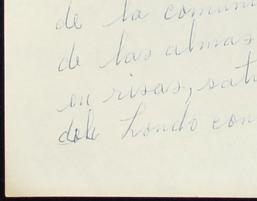 de la comuni
de las almas
en risas, sat
dele hondo con